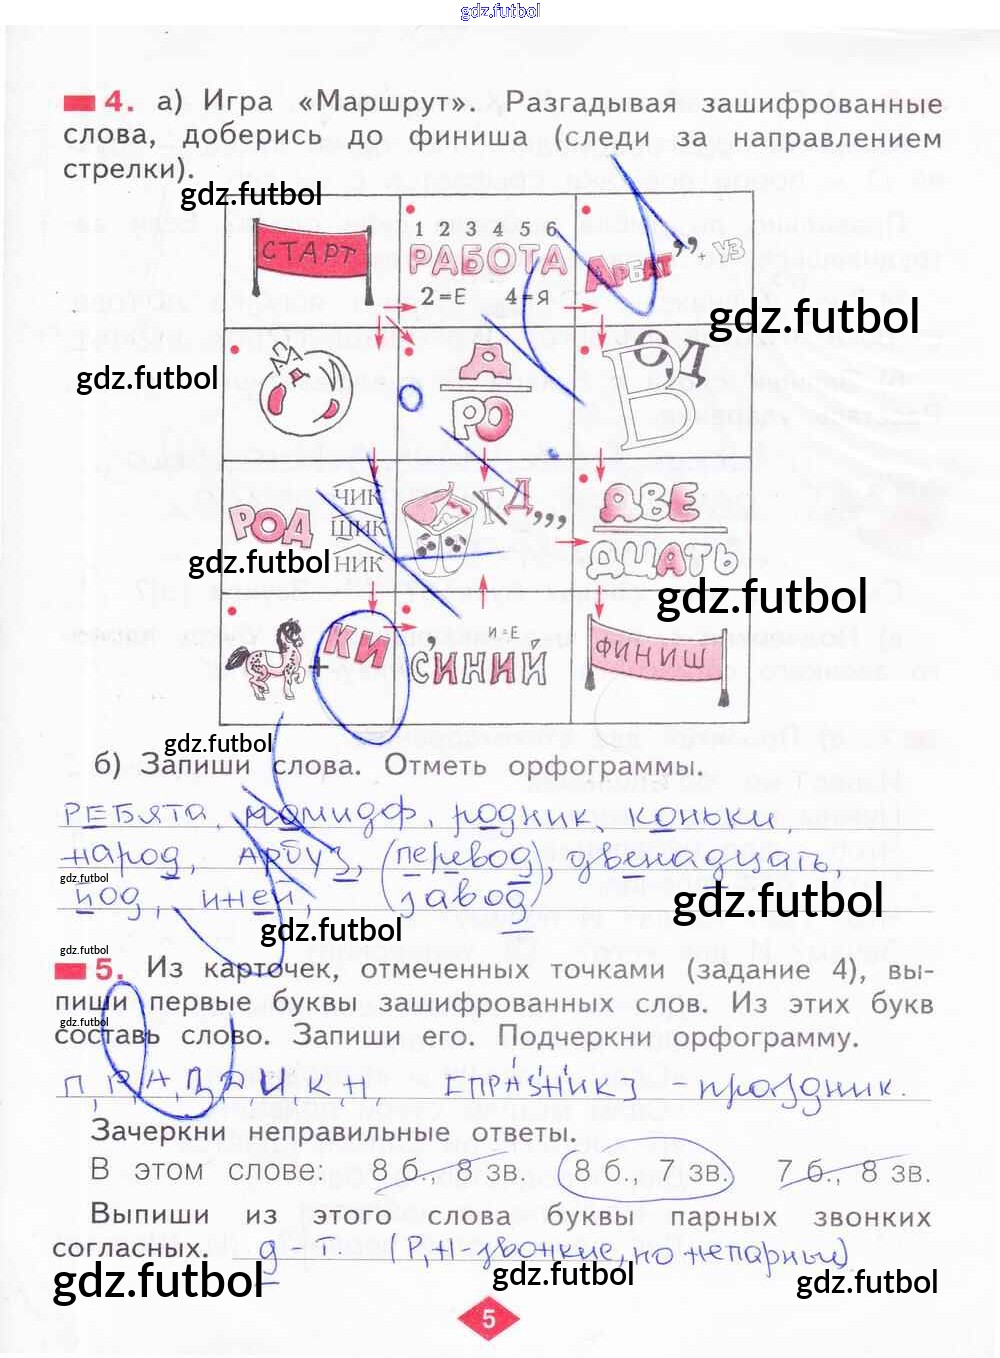 gdz.futbol
4. а) Игра «Маршрут». Разгадывая зашифрованные
слова, доберись до финиша (следи за направлением
стрелки).
gdz.futbol
СТАРТ
1 2 3 4 5 6
РАБОТА
2=Е 4=Я
АРБАТ” + УЗ
gdz.futbol
gdz.futbol
А
РО
ОД
В
РОД
ЧИК
ЩИК
НИК
Г Д,,,,
ДВЕ
ДЦАТЬ
gdz.futbol
gdz.futbol
+ КИ
И=Е
СИНИЙ
ФИНИШ
gdz.futbol
б) Запиши слова. Отметь орфограммы.
РЕБЯТА, помидор, родник, коньки,
народ, АРБУЗ, (перевод), двенадцать,
gdz.futbol
йод, иней, (завод)
gdz.futbol
gdz.futbol
gdz.futbol
5. Из карточек, отмеченных точками (задание 4), вы-
пиши первые буквы зашифрованных слов. Из этих букв
gdz.futbol
составь слово. Запиши его. Подчеркни орфограмму.
П, Р, А, З, Д, И, К, Н, [ПРАЗ'Н'ИК] – праздник.
Зачеркни неправильные ответы.
В этом слове: 8 б., 8 зв. 8 б., 7 зв. 7 б., 8 зв.
Выпиши из этого слова буквы парных звонких
согласных. д г. (Р, Н-звонкие, но непарные)
gdz.futbol
gdz.futbol
gdz.futbol
5